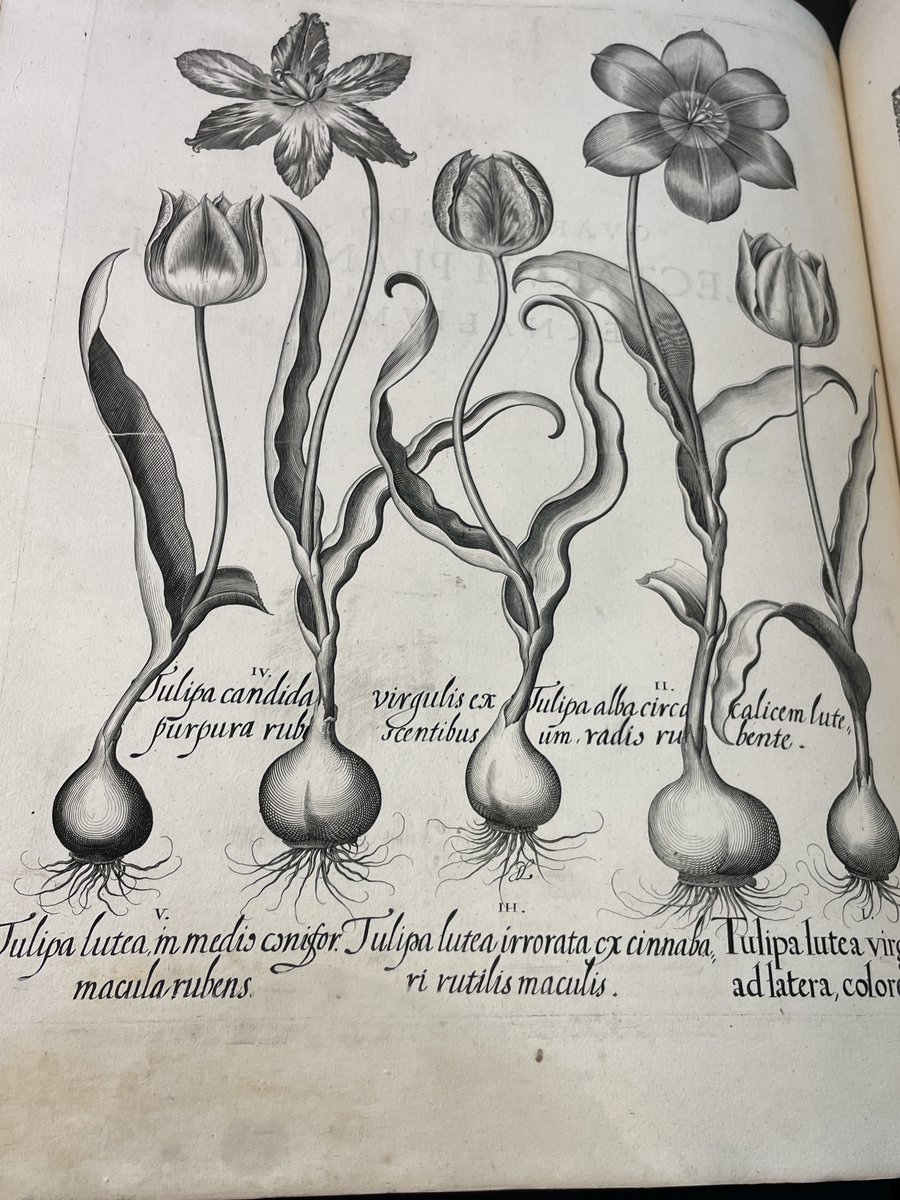 IV.
Tulipa candida virgulis ex
purpura rubescentibus
II.
Tulipa alba circa calicem lute„
um, radio rubente.
V.
Tulipa lutea, in medio conifor.
macula rubens.
III.
Tulipa lutea irrorata ex cinnaba„
ri rutilis maculis.
I.
Tulipa lutea
ad latera,